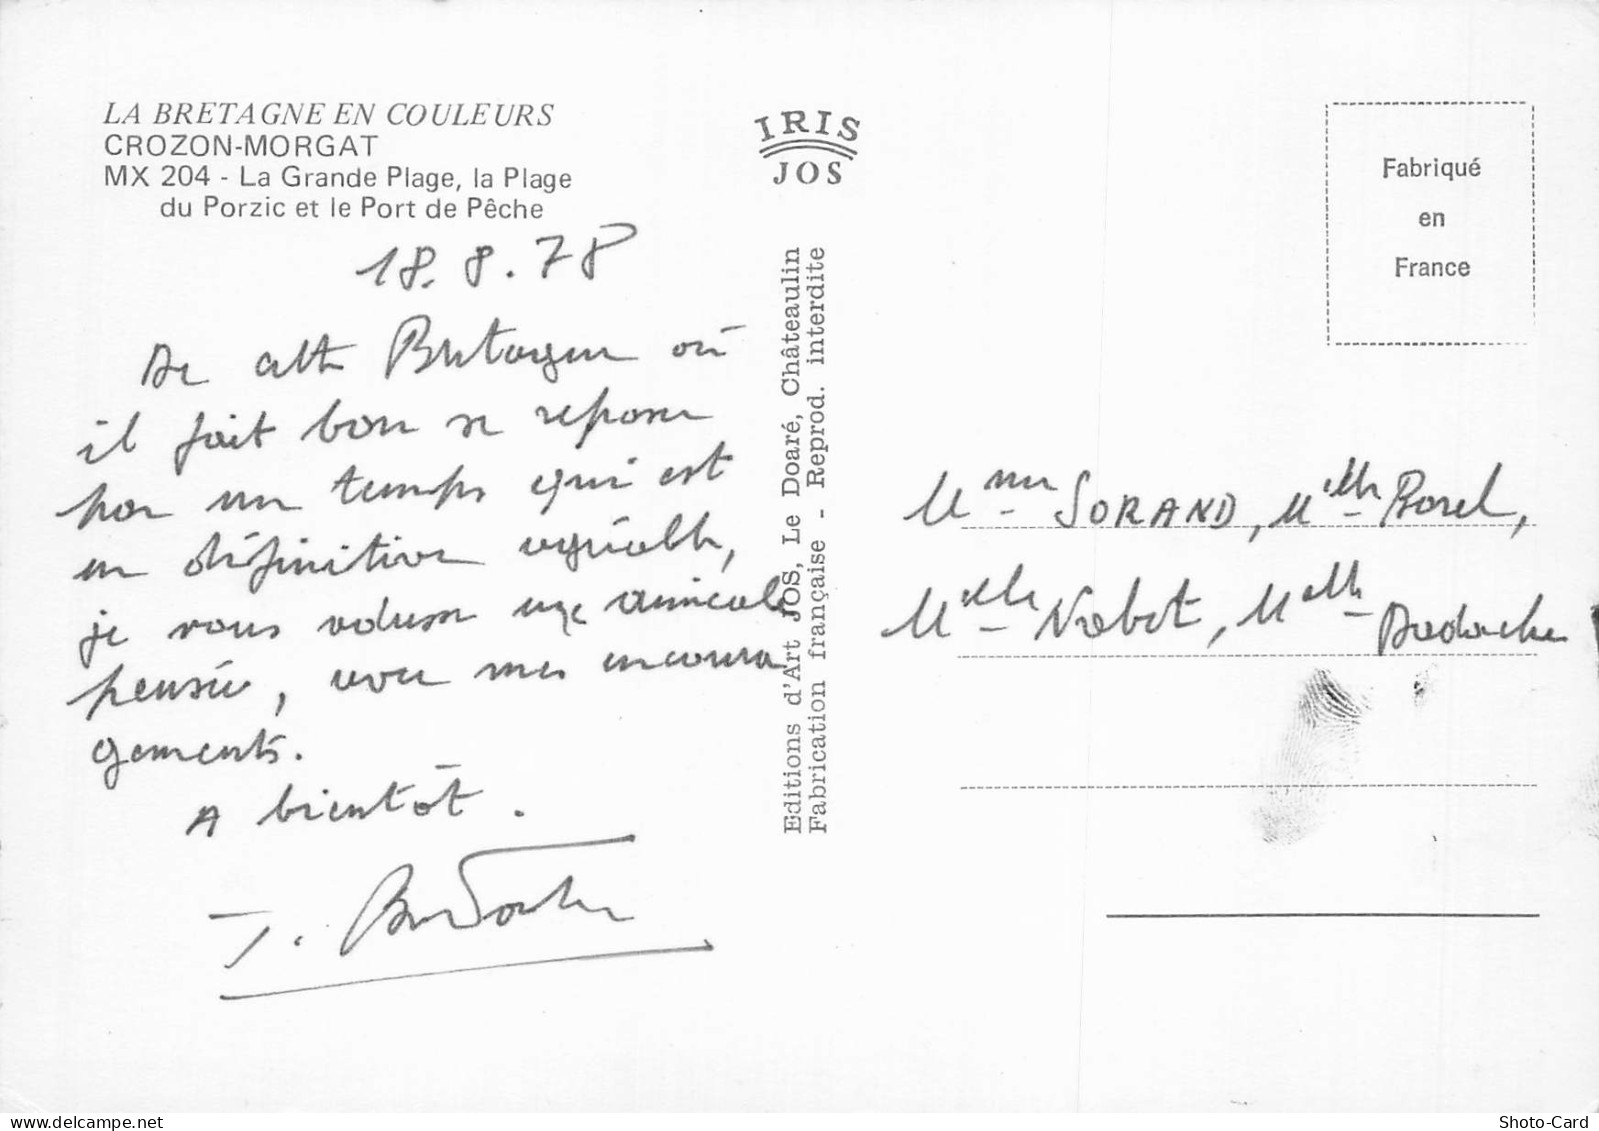 LA BRETAGNE EN COULEURS
CROZON-MORGAT
MX 204 - La Grande Plage, la Plage
du Porzic et le Port de Pêche
18.8.78
De cette Bretagne où
il fait bon se reposer
par un temps qui est
en définitive agréable,
je vous adresse une amicale
pensée, avec mes encoura
gements.
A bientôt.
IRIS
JOS
Editions d'Art JOS, Le Doaré, Châteaulin
Fabrication française - Reprod. interdite
Fabriqué
en
France
Mme SORAND, Melle Borel,
Melle Nabot, Melle
Shoto-Card